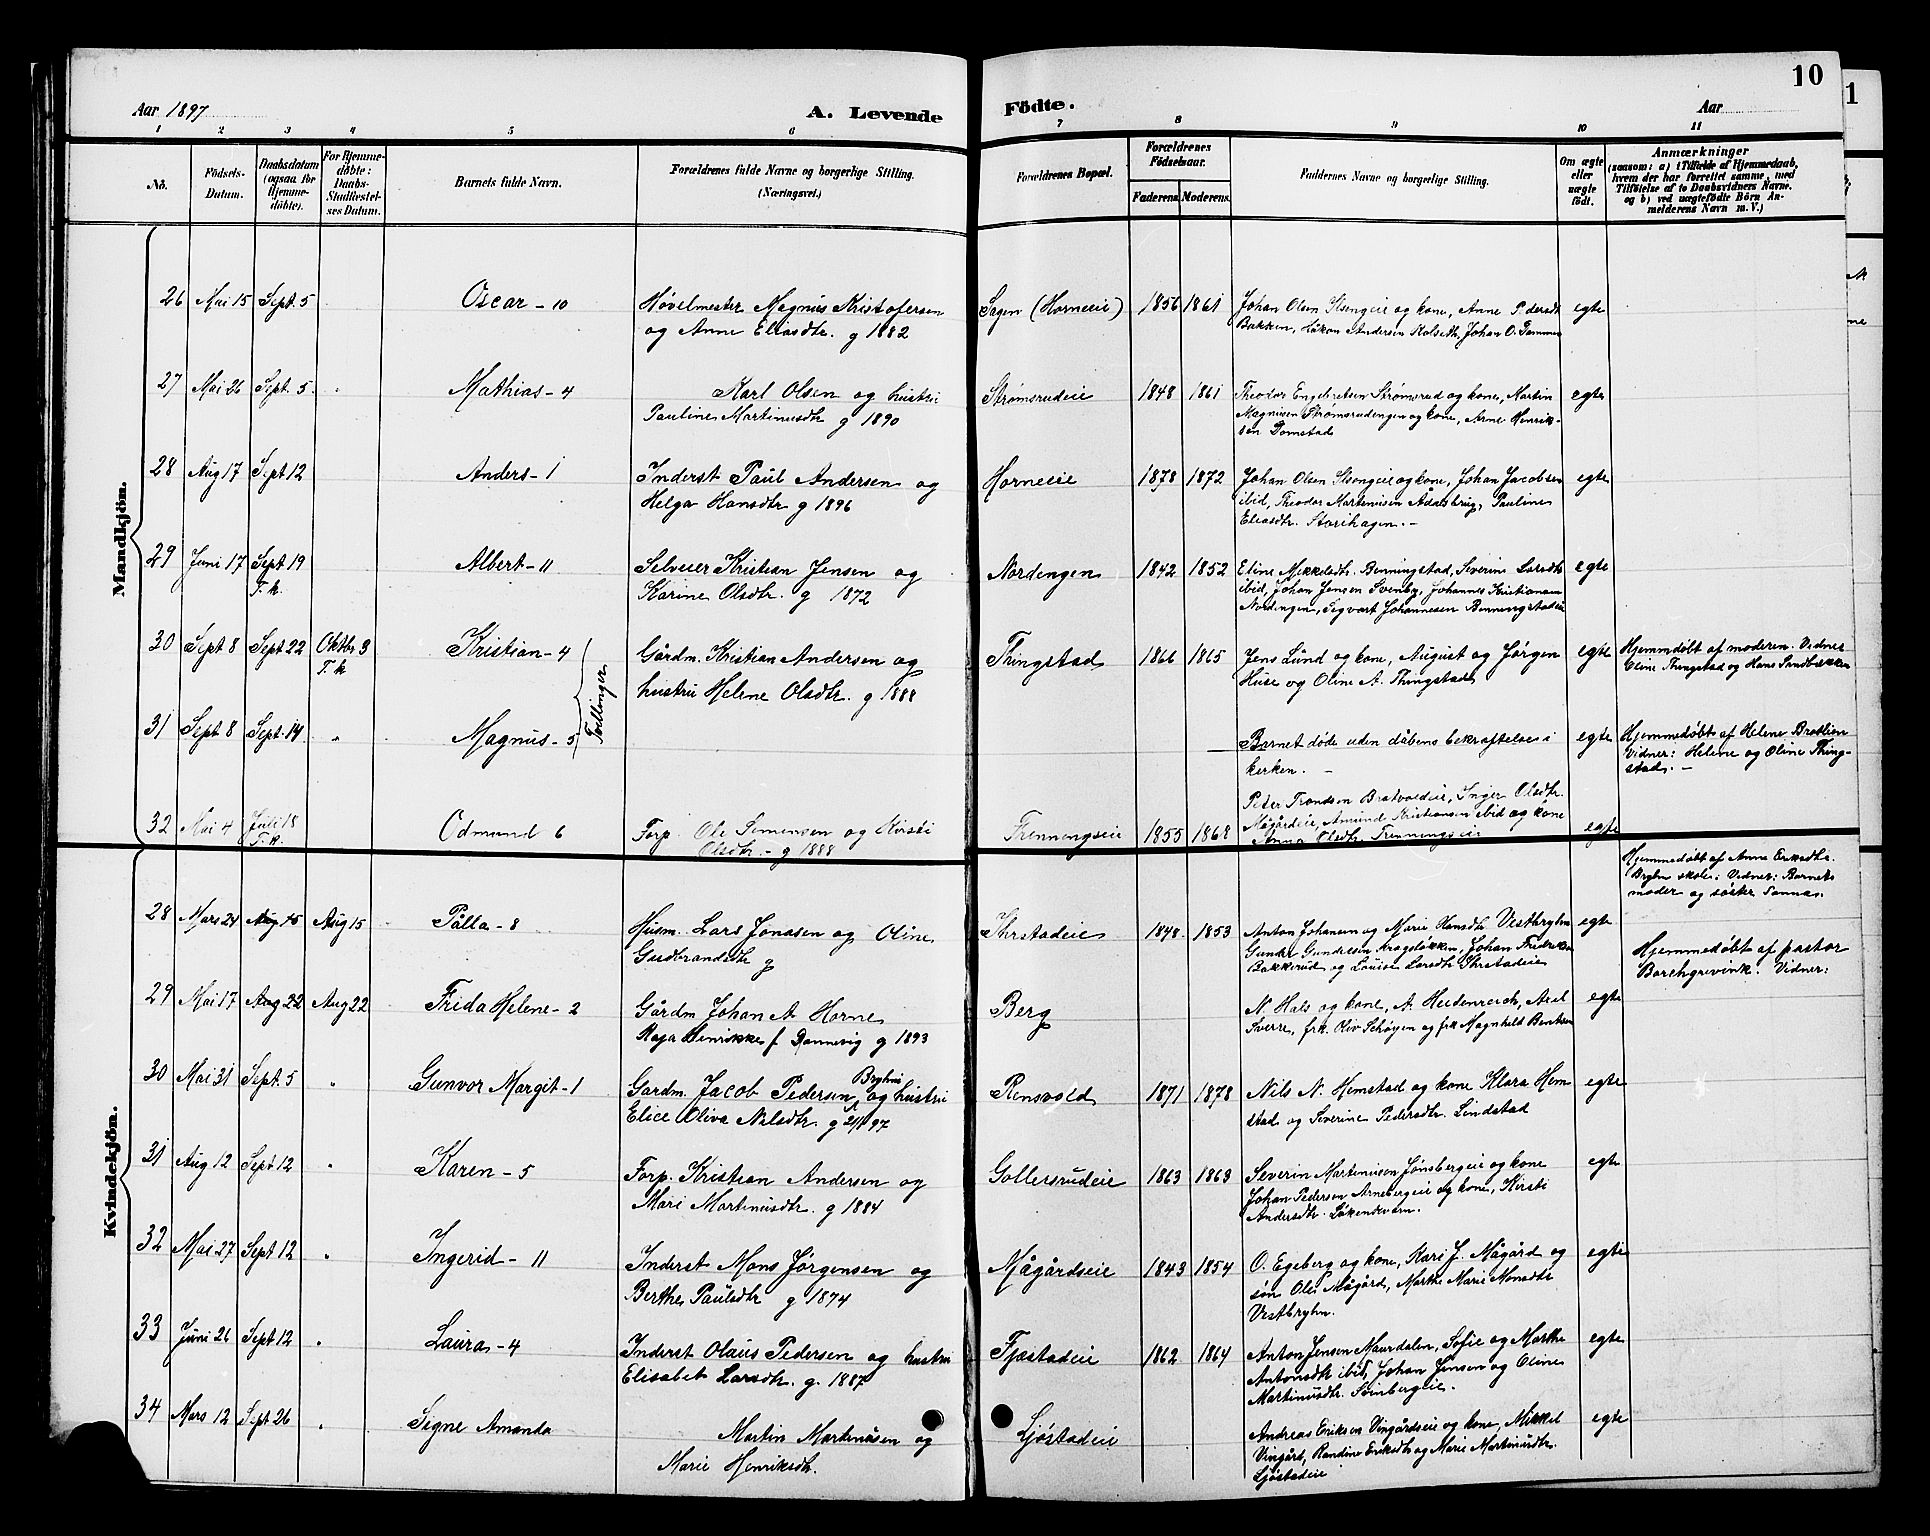 Aar 1897
A. Levende
Födte.
Aar
10
1
1 2 3 4 5 6 7 8 9 10 11
No.
Födsels-
Datum.
Daabsdatum
(ogsaa for
Hjemme-
döbte).
For Hjemme-
döbte:
Daabs-
Stadfæstel-
ses Datum.
Barnets fulde Navn.
Forældrenes fulde Navne og borgerlige Stilling.
(Næringsvei.)
Forældrenes Bopæl.
Forældrenes
Födselsaar.
Faderens. Moderens.
Faddernes Navne og borgerlige Stilling.
Om ægte
eller
uægte
födt.
Anmærkninger
(saasom: a) i Tilfælde af Hjemmedaab,
hvem der har forrettet samme, med
Tilföielse af to Daabsvidners Navne.
og b) ved uægtefödte Börn An-
melderens Navn m. V.)
Mandkjön.
26 Mai 15 Sept. 5 Oscar - 10 Høvelmester Magnus Kristofersen
og Anne Eliasdtr. g 1882
Sagen (Horneeie) 1856 1861 Johan Olsen Stsengeie og kone, Anne Pedersdt
Bakken, Håkon Andersen Kolseth, Johan O. egte
27 Mai 26 Sept. 5 " Mathias - 4 Karl Olsen og hustru
Pauline Martinusdtr g 1890
Strømsrudeie 1848 1861 Theodor Engebretsen Strømsrud og kone, Martin
Magnisen Strømsrudengen og kone, Arne Henrik-
sen Domstad egte
28 Aug 17 Sept 12 Anders - 1 Inderst Paul Andersen og
Helga Hansdtr g 1896
Horneeie 1878 1872 Johan Olsen Stsengeie og kone, Johan Jacobsen
ibid, Theodor Martinusen Ådalsbrug, Pauline
Eliasdtr. Storihagen. - egte
29 Juni 17 Sept 19
T. k.
Albert - 11 Selveier Kristian Jensen og
Karine Olsdtr. g 1872
Nordengen 1842 1852 Eline Mikkelsdtr. Benningstad, Severine Larsdtr
ibid, Johan Jensen Svenby, Johannes Kristiansen
Nordengen, Segvart Johannesen Benningstadeie egte
30 Sept 8 Sept 22 Oktbr 3
T. k
Kristian - 4 Gårdm. Kristian Andersen og
hustru Helene Olsdtr. g 1888
Tvillinger
Thingstad 1866 1865 Jens Lund og kone, August og Jørgen
Huse og Oline A. Thingstad egte Hjemmdøbt af moderen. Vidner
Oline Thingstad og Hans Sandbakken
31 Sept 8 Sept. 14 " Magnus - 5
Barnet døde uden dåbens bekræftelse i
kerken. - egte Hjemmedøbt af Helene Brotlien
Vidner: Helene og Oline Thing-
stad. -
32 Mai 4 Juli 18
T. k.
Odmund 6 Forp. Ole Simensen og Kirsti
Olsdtr. - g 1888
Frenningseie 1855 1868 Peter Trondsen Bratvoldeie, Inger Olsdtr.
Mågårdeie, Amund Kristiansen ibid og kone
Anna Olsdtr. Frenningseie egte
Kvindekjön.
28 Mars 24 Aug 15 Aug 15 Palla - 8 Husm. Lars Jonasen og Oline
Gudbrandsdtr g
Ihrstadeie 1848 1853 Anton Johansen og Marie Hansdtr Vestbryhn
Gunder Gundersen Kragsløkken, Johan Fredriksen
Bakkerud og Louise Larsdtr Ihrstadeie egte
Hjemmedøbt af Anne Eriksdtr.
Bryhn skole. Vidner: Barnets
moder og søster Sanna.
29 Mai 17 Aug 22 Aug 22 Frida Helene - 2 Gårdm Johan A Horne
Raga Henrikke f. Rannevig g 1893
Berg N. Hals og kone, A. Heidenreich, Axel
Sverre, frk. Oliv Schøyen og frk Magnhild Bentsen egte
Hjemmedøbt af pastor
Borchgrevink. Vidner:
30 Mai 31 Sept. 5 " Gunvor Margit - 1 Gardm. Jacob Pedersen Bryhni og hustru
Elice Oliva Nilsdtr. g 2/1 97
Rensvold 1871 1878 Nils N. Hemstad og kone Klara Hem
stad og Severine Pedersdtr. Lindstad egte
31 Aug 12 Sept 12 " Karen - 5 Forp. Kristian Andersen og
Mari Martinusdtr. g 1884
Gollersrudeie 1863 1863 Severin Martinusen Jønsbergeie og kone
Johan Pedersen Arnebergeie og kone, Kirsti
Andersdtr. Løkendevann. egte
32 Mai 27 Sept 12 " Ingerid - 11 Inderst Mons Jørgensen og
Berthe Paulsdtr g 1874
Mågårdseie 1843 1854 O. Egeberg og kone, Kari J. Mågård og
søn Ole Mågård, Marthe Marie Monsdtr
Vestbryhn. egte
33 Juni 26 Sept 12 " Laura - 4 Inderst Olaus Pedersen og hustru
Elisabet Larsdtr. g. 1887
Fjæstadeie 1862 1864 Anton Jensen Maurdalen, Sofie og Marthe
Antonsdtr ibid, Johan Jensen og Oline
Martinusdtr. Svinbergeie. egte
34 Mars 12 Sept 26 " Signe Amanda Martin Martinusen og
Marie Henriksdtr.
Ljøstadeie Andreas Eriksen Vingårdseie og kone, Mikkel
Vingård, Randine Eriksdtr og Marie Martinusdtr.
Ljøstadeie egte